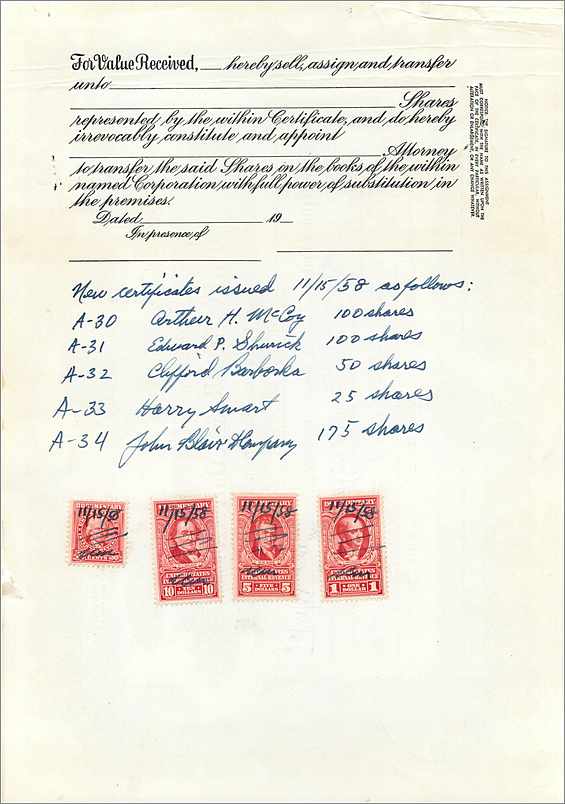 For Value Received, ___ hereby sell, assign, and transfer
unto
Shares
represented by the within Certificate, and do hereby
irrevocably constitute and appoint
Attorney
to transfer the said Shares on the books of the within
named Corporation, with full power of substitution in
the premises.
Dated 19
In presence of
NOTICE: THE SIGNATURE TO THIS ASSIGNMENT
MUST CORRESPOND WITH THE NAME AS WRITTEN UPON THE
FACE OF THE CERTIFICATE, IN EVERY PARTICULAR, WITHOUT
ALTERATION OR ENLARGEMENT, OR ANY CHANGE WHATEVER.
New certificates issued 11/15/58 as follows:
A-30 Arthur H. McCoy 100 shares
A-31 Edward P. Shurick 100 shares
A-32 Clifford Barborka 50 shares
A-33 Harry Smart 25 shares
A-34 John Blair & Company 175 shares
DOCUMENTARY DOCUMENTARY DOCUMENTARY DOCUMENTARY
11/15/58 11/15/58 11/15/58 11/15/58
UNITED STATES UNITED STATES UNITED STATES
INTERNAL REVENUE INTERNAL REVENUE INTERNAL REVENUE
10 TEN DOLLARS 10 5 FIVE DOLLARS 5 1 ONE DOLLAR 1